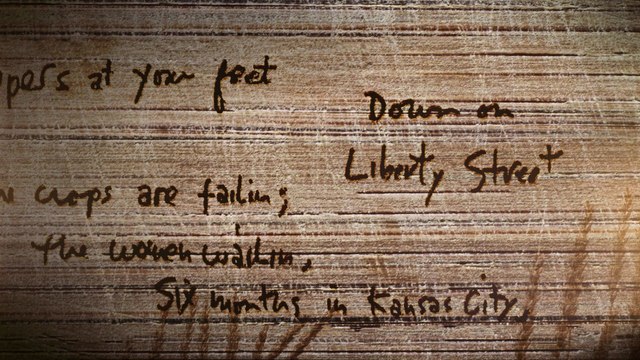 at your feet
Down on
Liberty Street
crops are failin;
the women wailin,
Six months in Kansas City,